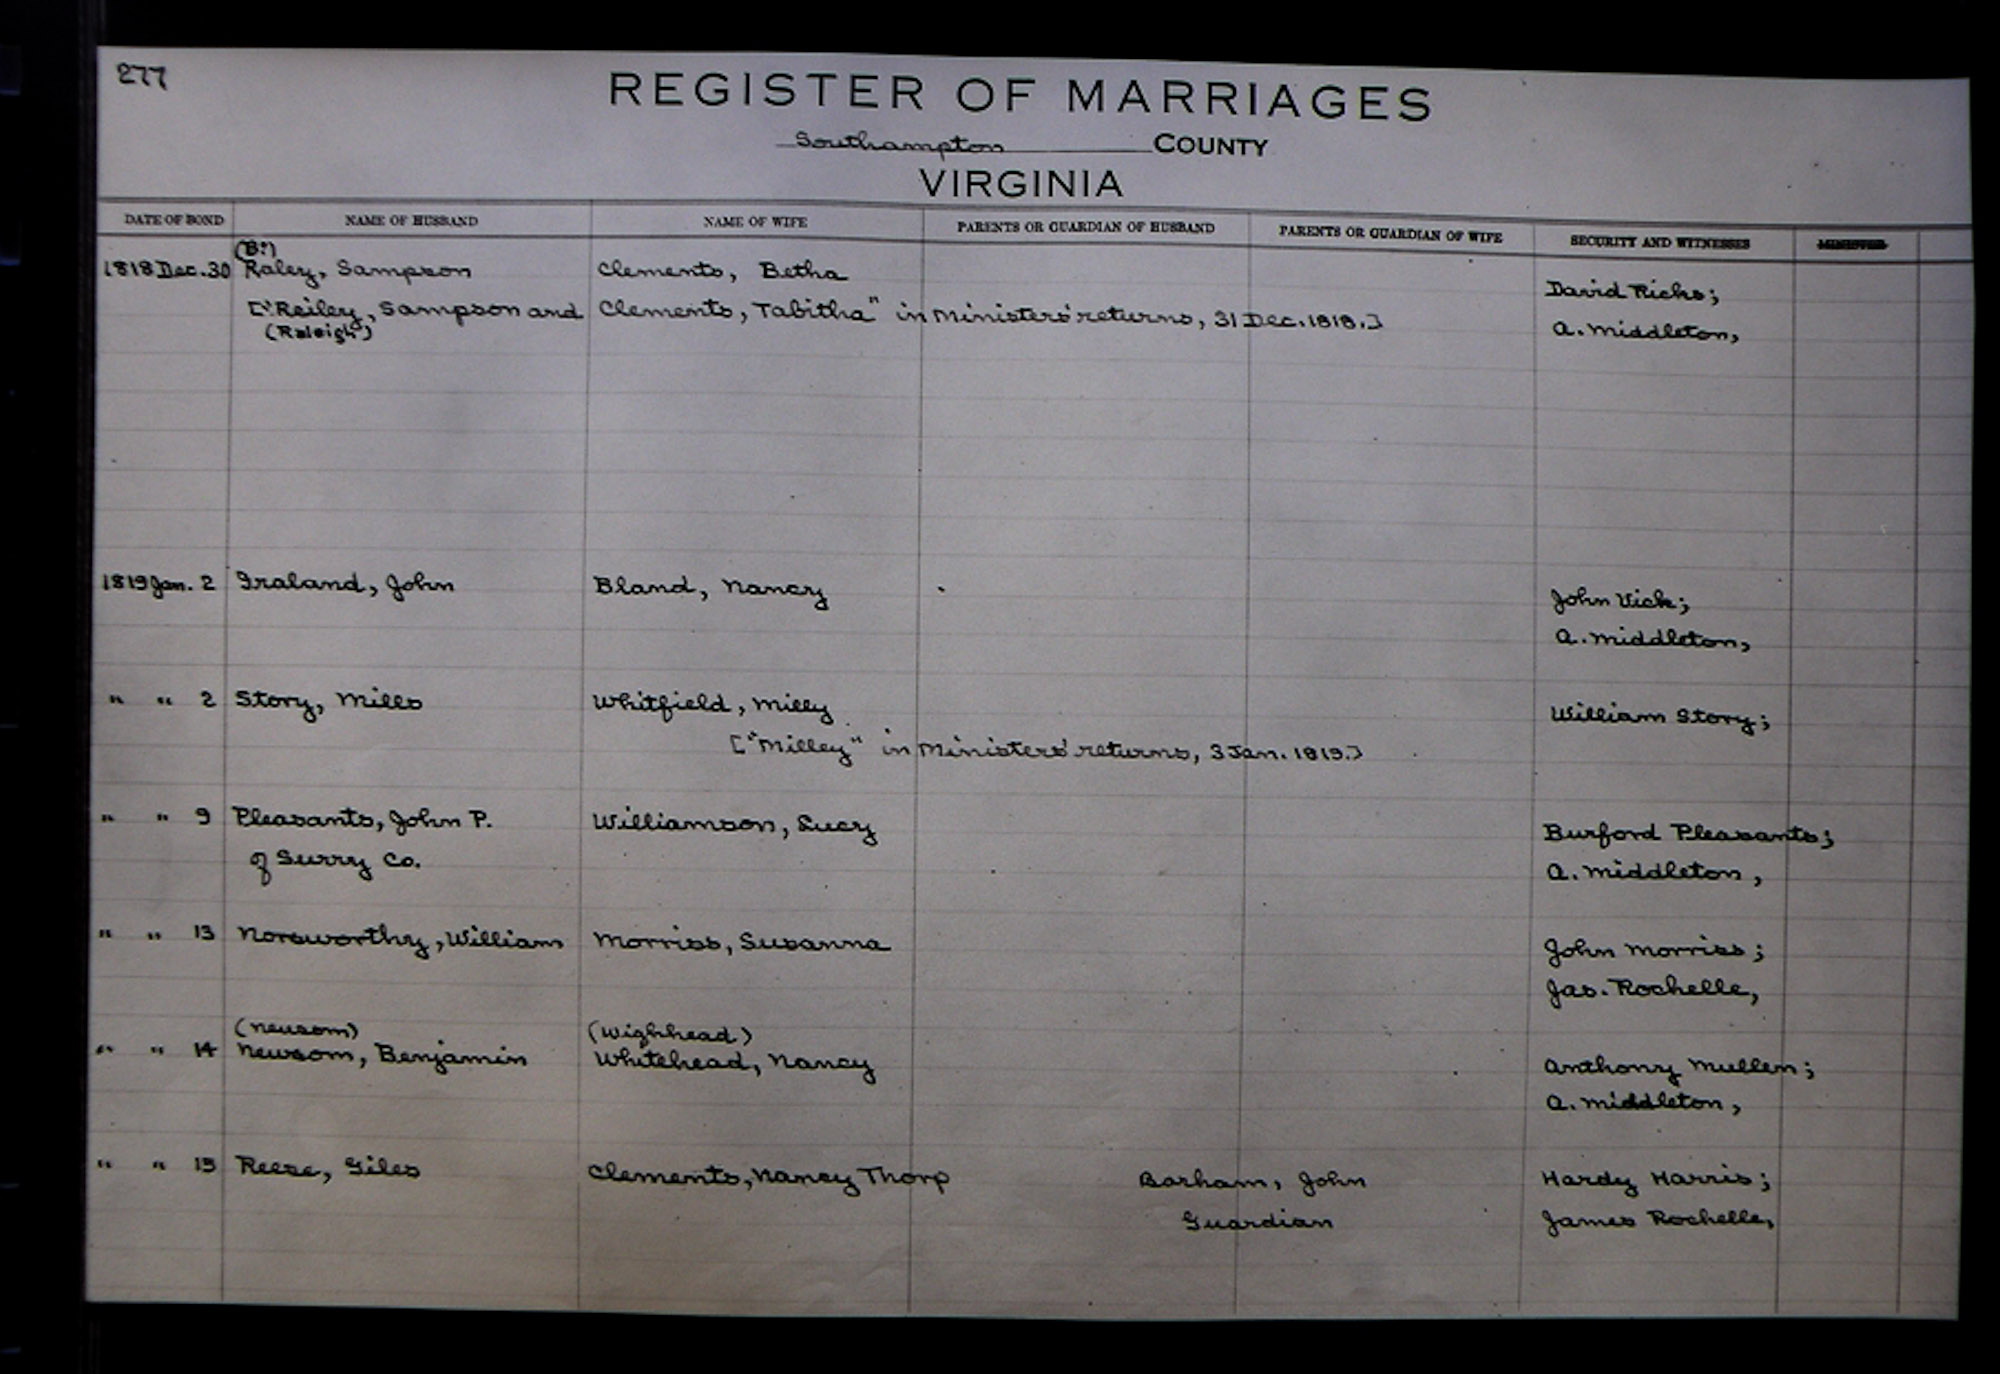 277
REGISTER OF MARRIAGES
Southampton COUNTY
VIRGINIA
DATE OF BOND NAME OF HUSBAND NAME OF WIFE PARENTS OR GUARDIAN OF HUSBAND PARENTS OR GUARDIAN OF WIFE SECURITY AND WITNESSES MINISTER
(B?)
1818 Dec. 30 Raley, Sampson Clements, Betha
David Ricks;
["Reiley, Sampson and Clements, Tabitha" in Ministers' returns, 31 Dec. 1818.]
(Raleigh) A. Middleton,
1819 Jan. 2 Iraland, John Bland, Nancy
John Vick;
A. Middleton,
" " 2 Story, Mills Whitfield, Milly
William Story;
["Milley" in Ministers' returns, 3 Jan. 1819.]
" " 9 Pleasants, John P. Williamson, Lucy
Burford Pleasants;
of Surry Co.
A. Middleton,
" " 13 Norsworthy, William Morriss, Susanna
John Morriss;
Jas. Rochelle,
(Neusom) (Wighhead)
" " 14 Newsom, Benjamin Whitehead, Nancy
Anthony Mullen;
A. Middleton,
" " 15 Reese, Giles Clements, Nancy Thorp Barham, John Hardy Harris;
Guardian James Rochelle,